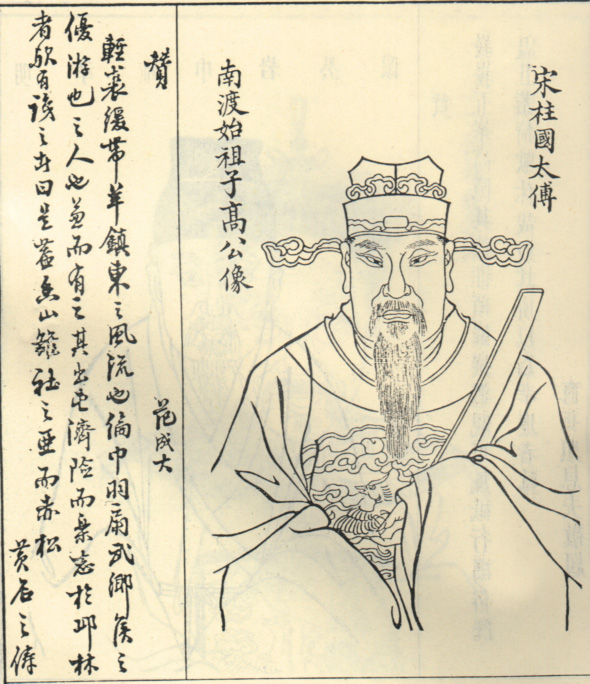 宋柱國太傅
南渡始祖子高公像
贊
范成大
輕裘緩帶羊鎮東之風流也綸巾羽扇武鄉侯之
優游也之人也並而有之其出也濟險而棄志於邱林
者歟百談之古曰是山龍社之亞而赤松
黃石之儔